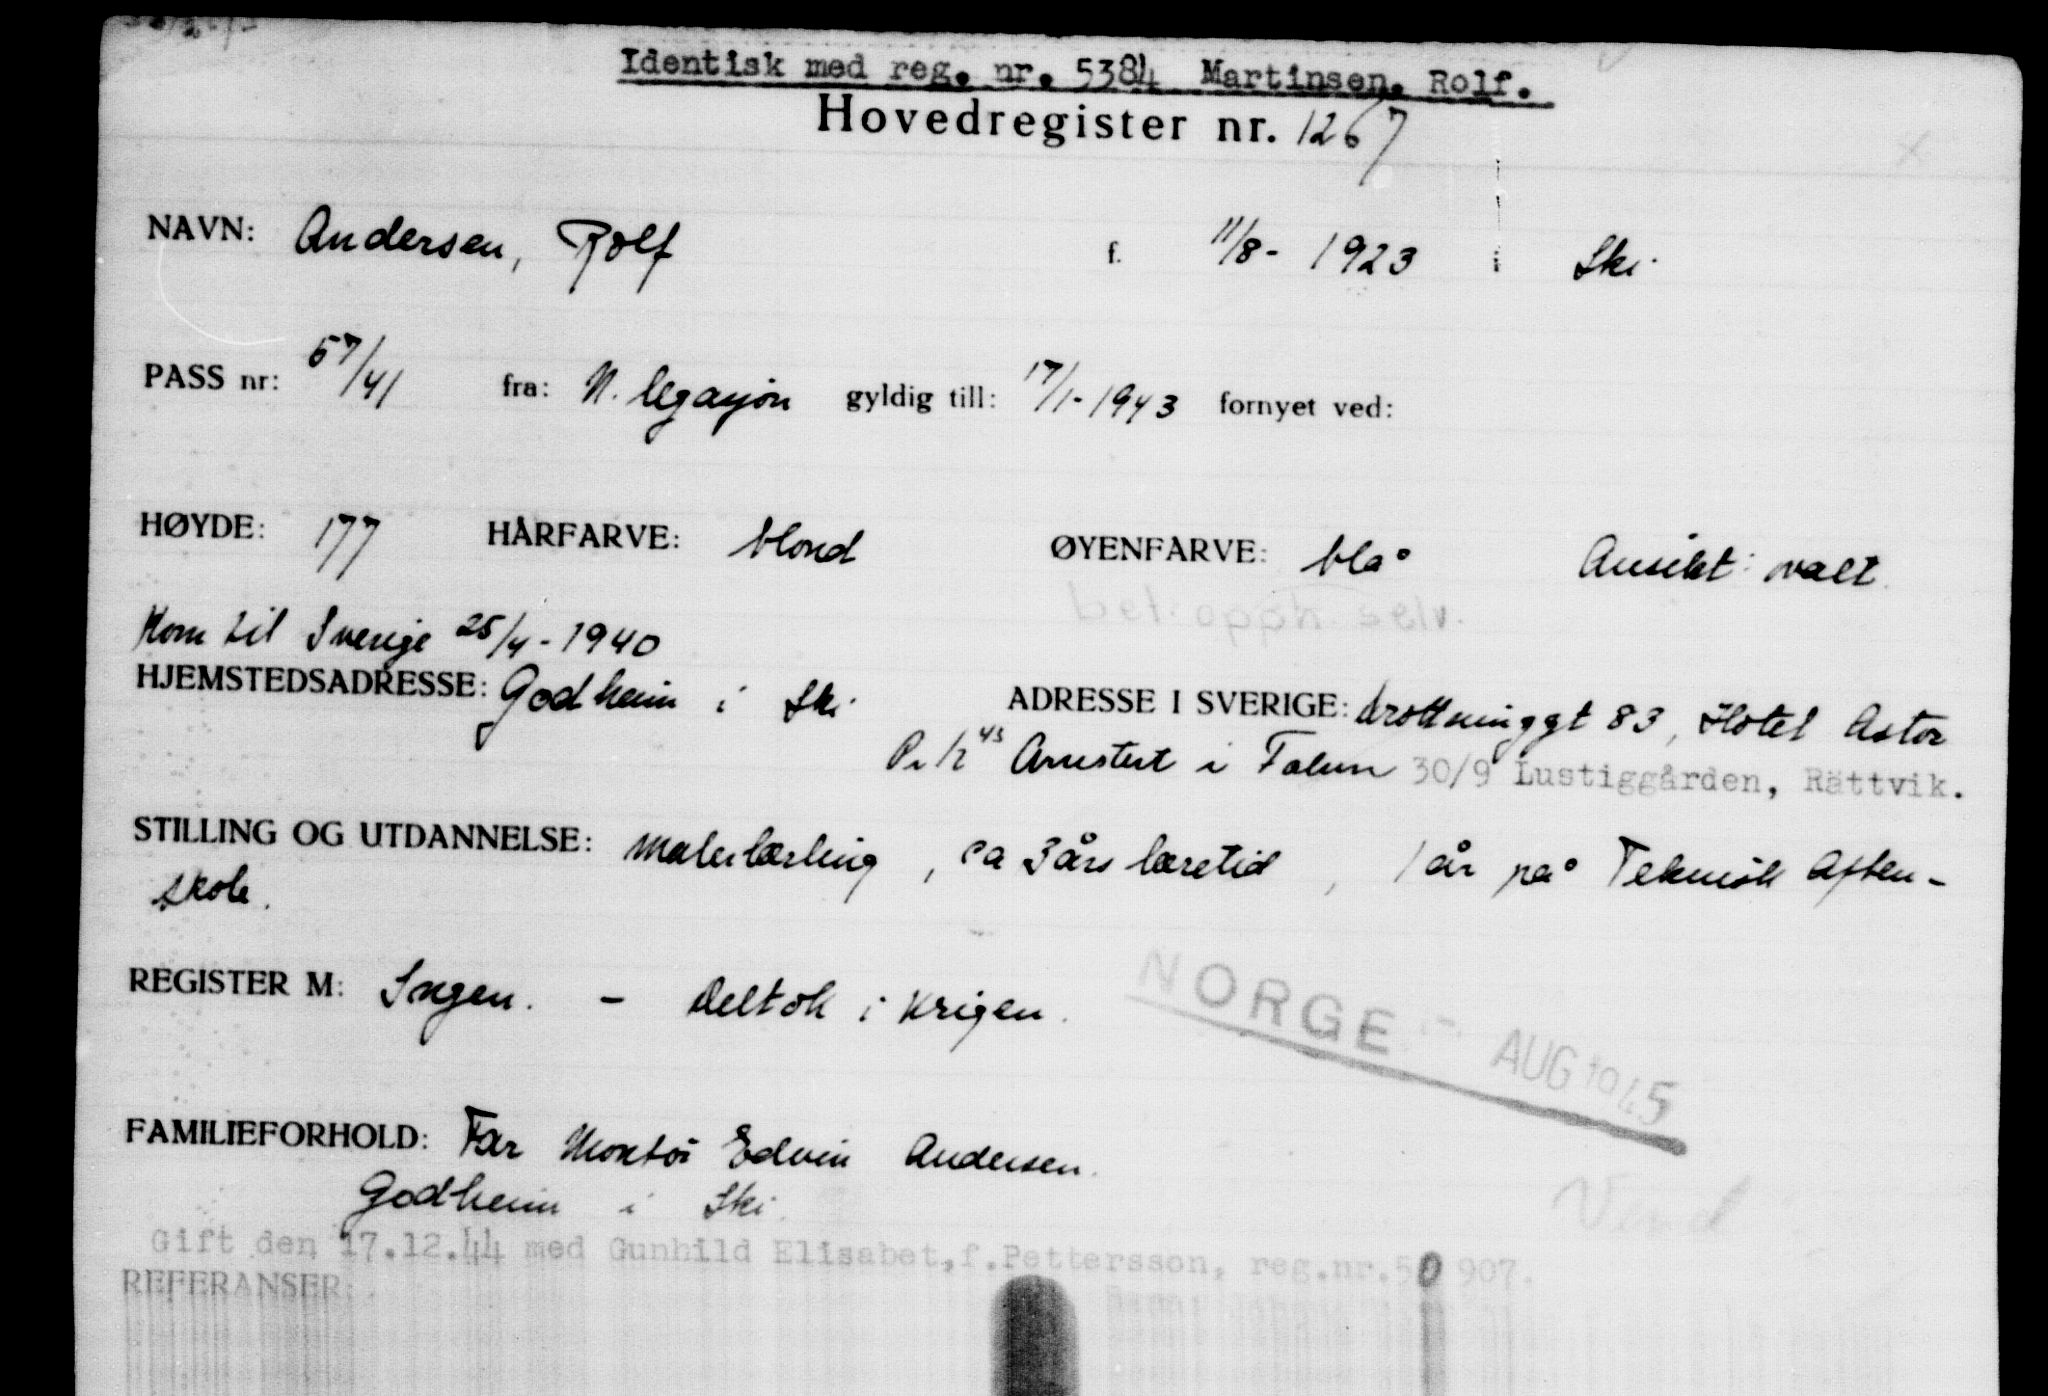 Identisk med reg. nr. 5384 Martinsen, Rolf.
Hovedregister nr. 1267
NAVN: Andersen, Rolf f. 11/8 - 1923 i Ski.
PASS nr: 57/41 fra: N. legasjon gyldig till: 17/1 - 1943 fornyet ved:
HØYDE: 177 HÅRFARVE: blond ØYENFARVE: blå Ansikt: ovalt.
bet. opph. selv.
Kom til Sverige 25/4 - 1940
HJEMSTEDSADRESSE: Godheim i Ski. ADRESSE I SVERIGE: Drottninggt 83, Hotel Astor
Pr 1/2 43 Arrestert i Falun 30/9 Lustiggården, Rättvik.
STILLING OG UTDANNELSE: Malerlærling, ca 3 års læretid, 1 år på Teknisk Aften-
skole.
REGISTER M: Ingen. - Deltok i krigen.
NORGE AUG 1945
FAMILIEFORHOLD: Far Montør Edvin Andersen.
Godheim i Ski.
Vend
Gift den 17.12.44 med Gunhild Elisabet, f. Pettersson, reg.nr. 50 907.
REFERANSER: